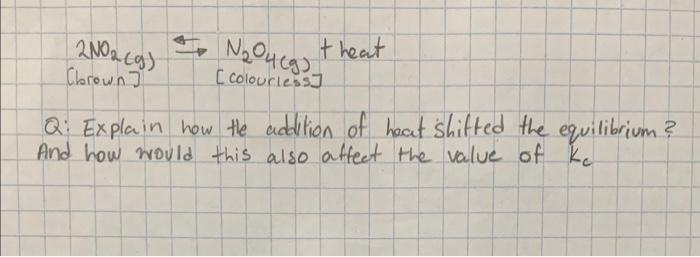 2NO2(g) ⇆ N2O4(g) + heat
[brown] [colourless]
Q: Explain how the addition of heat shifted the equilibrium?
And how would this also affect the value of kc